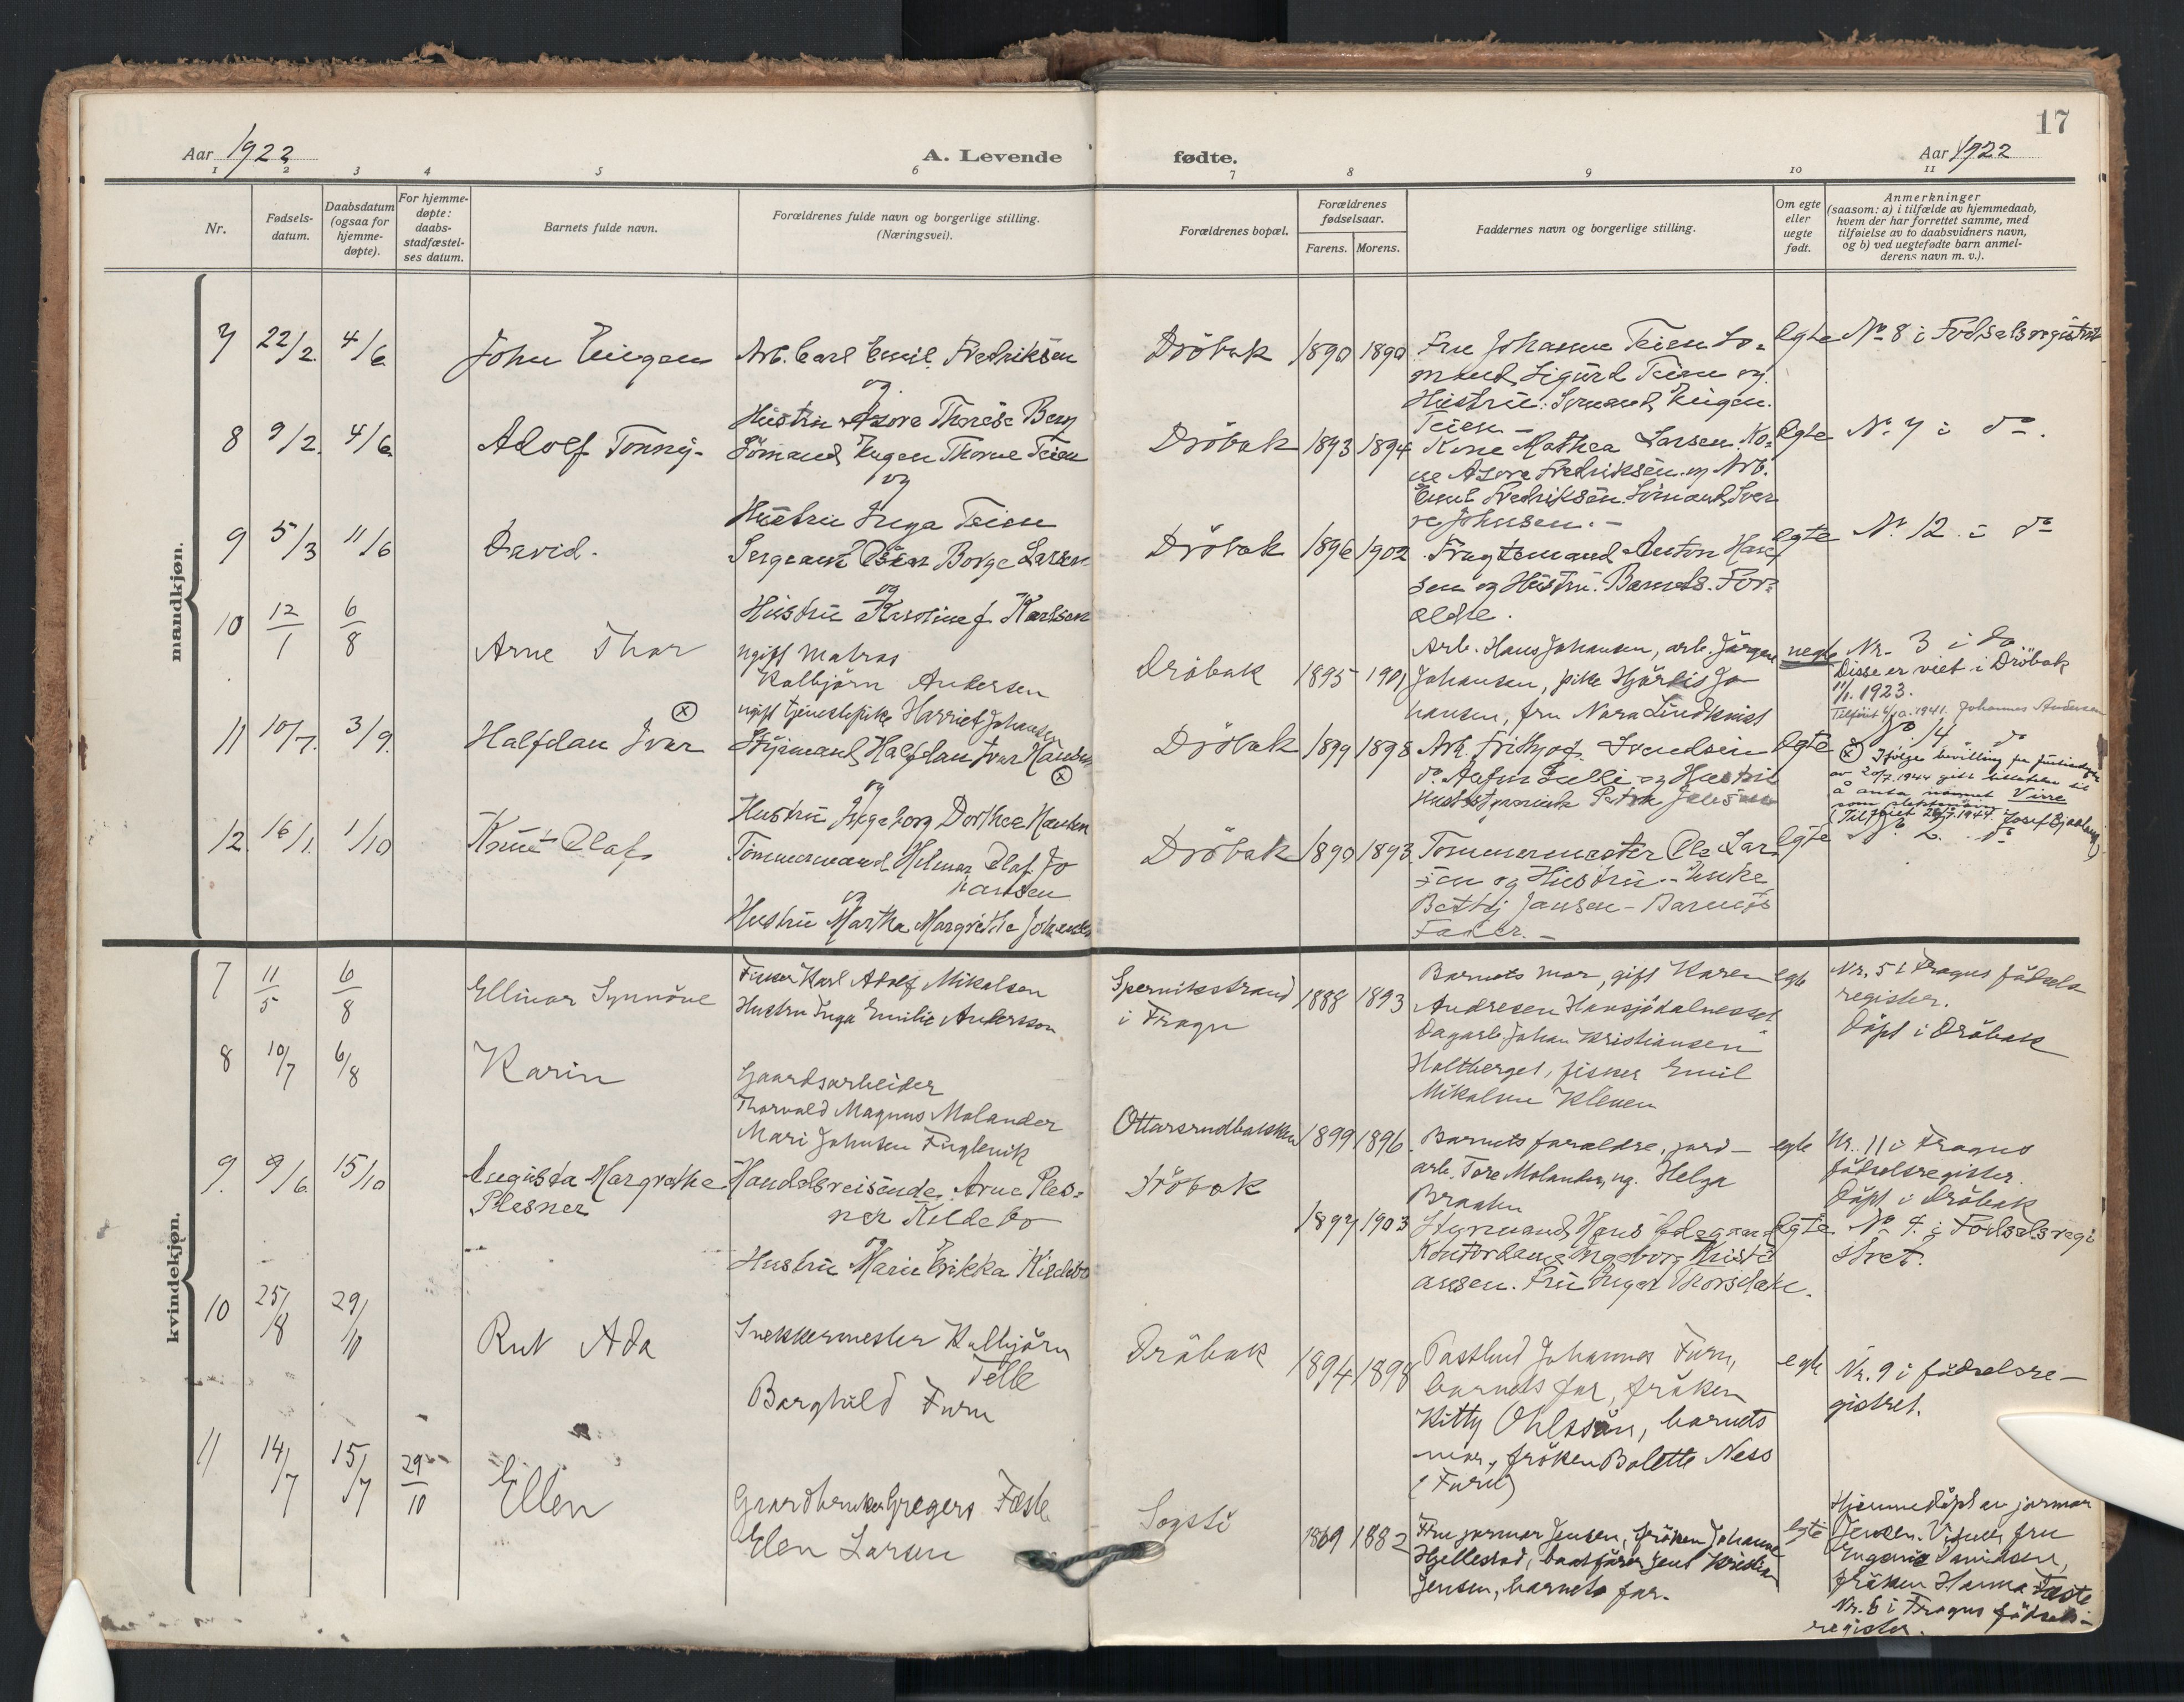 17
Aar 1922
A. Levende
fødte.
Aar 1922
1 2 3 4 5 6 7 8 9 10 11
Nr.
Fødsels-
datum.
Daabsdatum
(ogsaa for
hjemme-
døpte).
For hjemme-
døpte:
daabs-
stadfæstel-
ses datum.
Barnets fulde navn.
Forældrenes fulde navn og borgerlige stilling.
(Næringsvei).
Forældrenes bopæl.
Forældrenes
fødselsaar.
Farens. Morens.
Faddernes navn og borgerlige stilling.
Om egte
eller
uegte
født.
Anmerkninger
(saasom: a) i tilfælde av hjemmedaab,
hvem der har forrettet samme, med
tilføielse av to daabsvidners navn,
og b) ved uegtefødte barn anmel-
derens navn m. v.).
mandkjøn.
7 22/2. 4/6 John Eugen
Arb. Carl Emil Fredriksen
og
Hustru Asora Therese Berg
Dröbak 1890 1890
Fru Johanne Teien Sö-
mand Sigurd Teien og
Hustru. Sömand Eugen
Teien –
Egte
No 8 i Fødselsregistret
8 9/2. 4/6 Adolf Tonny-
Sömand Eugen Thorne Teien
og
Hustru Inga Teien
Dröbak 1893 1894
Kone Mathea Larsen Ko-
ne Asora Fredriksen og Arb.
Emil Fredriksen. Sömand Sver
re Johnsen. –
Egte
No 7 i do.
9 5/3 11/6 David.
Sergeant Oskar Borge Larsen
og
Hustru Karoline f. Karlsen
Dröbak 1896 1902
Fragtemand Anton Han
sen og Hustru. Barnets For-
ældre.
Egte
No 12 i do
10 12/1 6/8 Arne Thor
ugift matros
Kolbjörn Andersen
ugift tjenestepike Harriet Johansen
Dröbak 1895 1901
Arb. Hans Johansen, arb. Jörgen
Johansen, pike Hjördis Jo
hansen, fru Nora Lindkvist
uegte
Nr. 3 i do
Disse er viet i Dröbak
11/1. 1923.
1941. Johannes Andersen
11 10/7. 3/9. Halfdan Ivar (x)
Styrmand Halfdan Ivar Hansen (x)
og
Hustru Ingeborg Dorthea Hansen
Dröbak 1899 1898
Arb. Frithjof Svendsen
do. Lulli og Hustru
Egte
No 14 do
(x) Ifølge bevilling fra
av 20/7. 1944 gitt tillatelse til
å anta navnet Virre
som slektsnavn.
(Tilføiet 28/7. 1944.
12. 16/1. 1/10 Knut Olaf
Tömmermand Hilmar Olaf Jo
hansen
og
Hustru Martha Margrethe Johansen
Dröbak 1890 1893
Tömmermester Ole Lar
sen og Hustru – Enke
Betty Jansen – Barnets
Fader. –
Egte
No 2. do
kvindekjøn.
7 11/5 6/8 Ellinor Synnöve
Fisker Karl Adolf Mikalsen
Hustru Inga Emilie Andersson
Spernikstrand
i Frogn
1888 1893
Barnets mor, gift Karen
Andresen
Dagarb. Johan Kristiansen
Holtberget, fisker Emil
Mikalsen Kleven
egte
Nr. 5 i Frogns födsels
register.
Döpt i Dröbak
8 10/7 6/8 Karin
Gaardsarbeider
Thorvald Magnus Molander
Mari Johnsen Fuglevik
Ottarsrudbakken 1899 1896.
Barnets foraldre, jord-
arb. Tore Molander, ug. Helga
Braaten
egte
Nr. 11 i Frogns
födselsregister.
Döpt i Dröbak
9. 9/6 15/10 Augusta Margrethe
Plesner
Handelsreisende Arne Ples-
ner Kildebo
og
Hustru Marie Erikka Kildebo
Dröbak
1897 1903
Styrmand Hans
Kontordame Ingeborg Kristi
ansen. Fru Inger
Egte
No 4 i Fødselsregi
stret.
10 25/8 29/10 Rut Ada
Snekkermester Kolbjörn
Telle
Borghild Furu
Dröbak
1894 1898
Postbud Johannes Furu,
barnets far, fröken
Kitty Ohlsson, barnets
mor, fröken Bolette Ness
(Furu)
egte
Nr. 9 i födselsre-
gistret.
11 14/7 15/7 29/10 Ellen
Gaardbruker Gregers Fæste
Elen Larsen
Sogsti
1869 1882
Fru jormor Jensen, fröken Johanne
Hjellestad, baatförer Jens Kristian
Jensen, barnets far.
egte
Hjemmedöpt av jormor
Jensen. Vidner fru
Eugenie Davidsen,
fröken Hanna Fæste
Nr. 6 i Frogns födsels-
register.